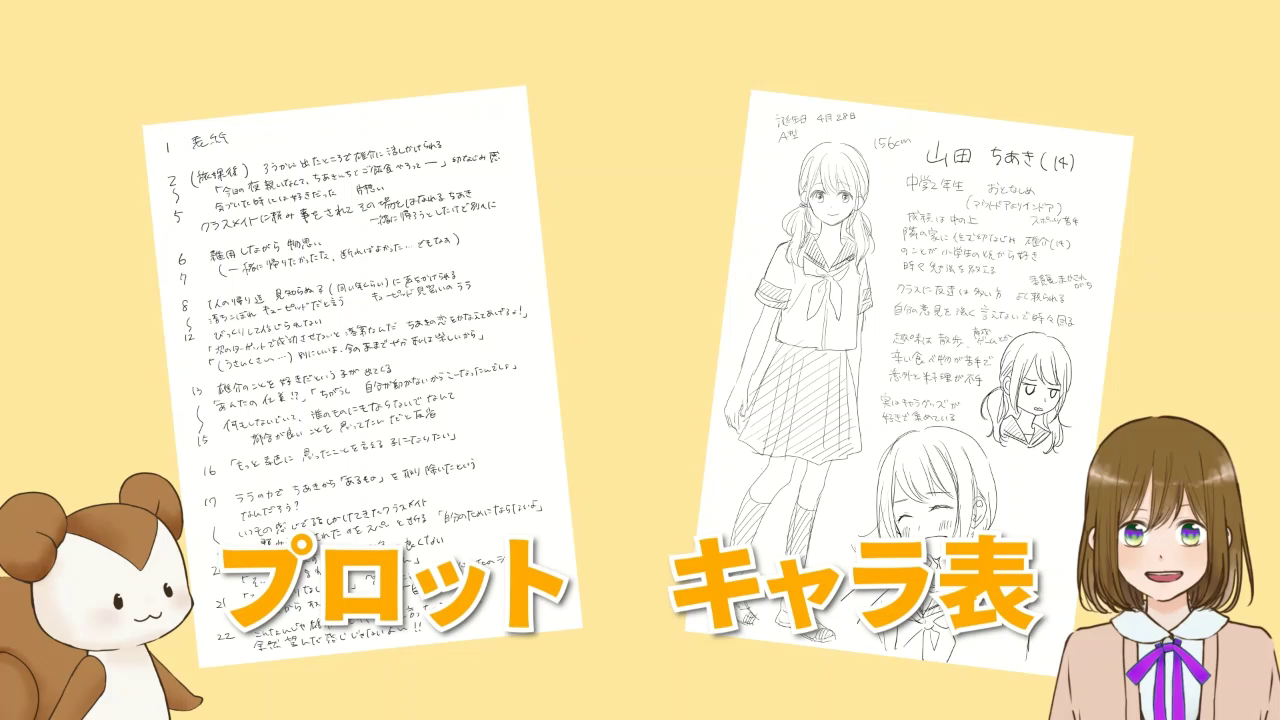 1 表紙
2 (放課後) ろうかに出たところで雄介に話しかけられる
「今日の夜親いなくて、ちあきんちでご飯食べやろって―」幼なじみ 思
気づいた時には好きだった 片想い
5 クラスメイトに頼み事をされてその場をはなれるちあき
一緒に帰ろうとしたけど別々に
6 雑用しながら物思い
7 (一緒に帰りたかったな、断ればよかった…でもなぁ)
8 1人の帰り道 見知らぬ子(同い年くらい)に声をかけられる
落ちこぼれキューピッドだと言う キューピッド見習いのララ
12 びっくりして信じられない
「次のターゲットで成功させないと落第なんだ ちあきの恋をかなえてあげるよ!」
「(うさんくさい…)別にいいよ、今のままでややれば楽しいから」
13 雄介のことを好きだという子が出てくる
「あんたの仕業!?」「ちがうし 自分が動かないからこーなったんでしょ」
何もしないでいて、誰のものにもならないでなんて
15 都合が良いことを思ってたんだと反省
16 「もっと素直に思ったことを言える子になりたい」
17 ララの力でちあきから「あるもの」を取り除いたという
なんだろう?
いつもの感じで話しかけてきたクラスメイト
されたのをスパッと断る「自分のためにならないよ」
21
22
全然望んだ感じじゃないよー!!
プロット
誕生日 4月28日
A型
156cm
山田 ちあき(14)
中学2年生 おとなしめ
(アウトドアよりインドア)
成績は中の上 スポーツ苦手
隣の家に住む幼なじみ 雄介(14)
のことが小学生の頃から好き
時々勉強を教える
クラスに友達は多い方 よく頼られる
自分の意見を強く言えないで時々困る
趣味は散歩、
辛い食べ物が苦手で
意外と料理が下手
実はキャラグッズが
好きで集めている
キャラ表